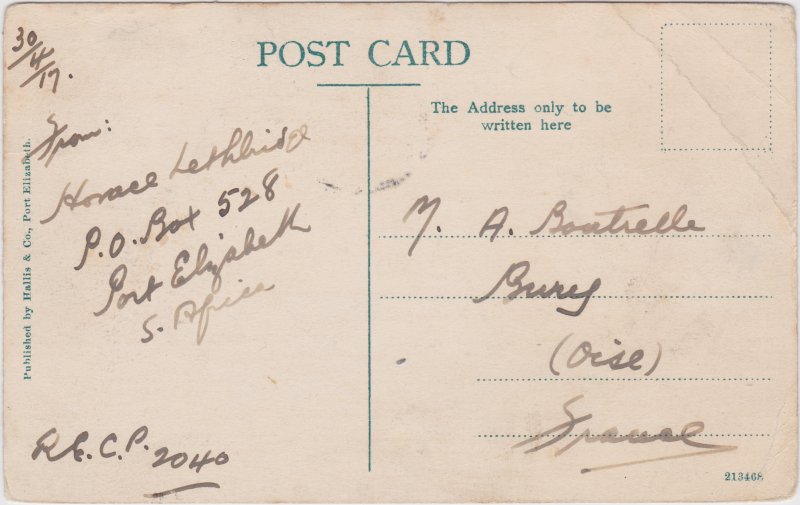 30/4/17.
POST CARD
The Address only to be
written here
From:
Horace Lethbridge
P.O. Box 528
Port Elizabeth
S. Africa
R.E.C.P. 2040
M. A. Boutrelle
Bury
(Oise)
France
Published by Hallis & Co., Port Elizabeth.
213468